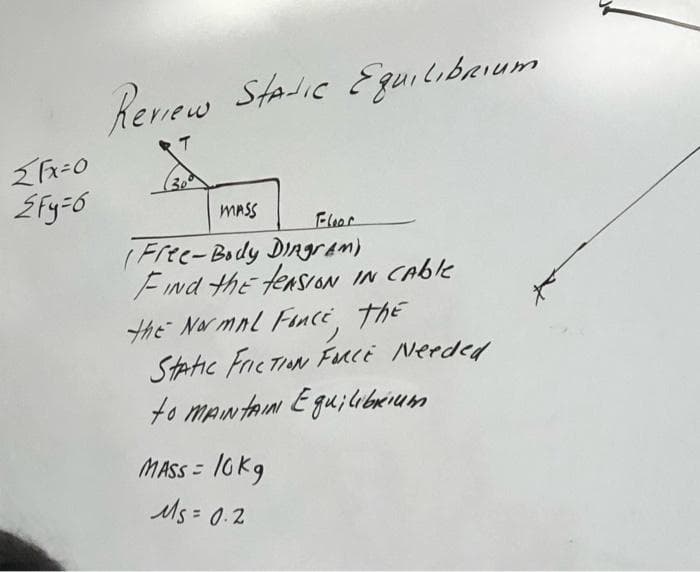 Review Static Equilibrium
T
ΣFx=0
30°
ΣFy=0
MASS
Floor
(Free-Body Diagram)
Find the tension in cable
the Normal Force, the
Static Friction Force Needed
to maintain Equilibrium
MASS = 10Kg
Ms = 0.2